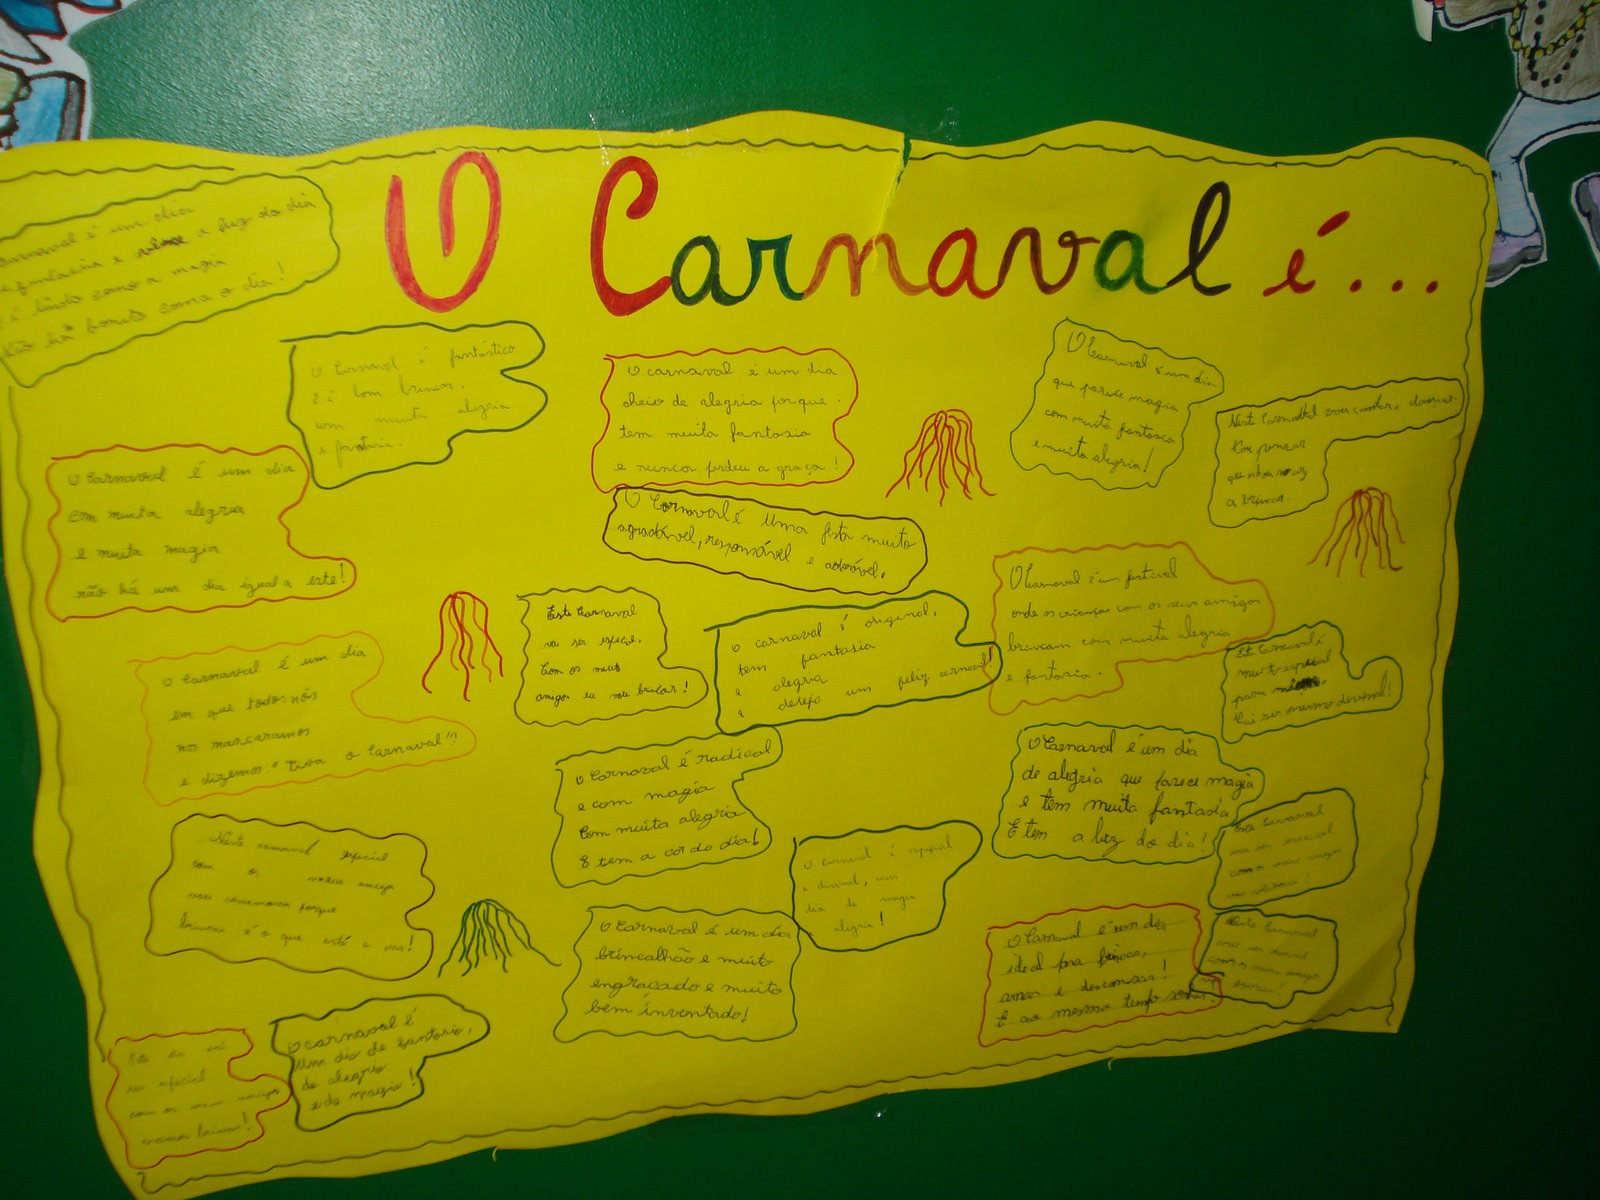 O Carnaval é...
Carnaval é um dia
e fantasia e vive a luz do dia
é lindo como a magia
Não há bonito como o dia!
O Carnaval é fantástico
e é bom brincar,
com muita alegria
e fantasia.
O carnaval é um dia
cheio de alegria porque
tem muita fantasia
e nunca perdeu a graça!
O Carnaval é um dia
que parece magia
com muita fantasia
e muita alegria!
Neste Carnaval vou cantar e dançar.
Vou pensar
que estou
a brincar.
O Carnaval é um dia
com muita alegria
e muita magia
não há um dia igual a este!
O Carnaval é uma festa muito
agradável, responsável e adorável.
Este Carnaval
vai ser especial.
Com os meus
amigos eu vou brincar!
O carnaval é original,
tem fantasia
e alegria
e desejo um feliz carnaval!
O Carnaval é um festival
onde as crianças com os seus amigos
brincam com muita alegria
e fantasia.
Este Carnaval é
muito especial
para
Vai ser mesmo divinal!
O Carnaval é um dia
em que todos nós
nos mascaramos
e dizemos: "Viva o Carnaval"!!
O Carnaval é radical
e com magia
Com muita alegria
E tem a cor do dia!
O Carnaval é um dia
de alegria que parece magia
e tem muita fantasia
E tem a luz do dia!
Neste carnaval especial
com os nossos amigos
vou comemorar porque
brincar é o que está a dar!
O Carnaval é especial
e divinal, um
dia de magia
e alegria!
Este Carnaval
vai ser especial
com os meus amigos
vou celebrar!
O Carnaval é um dia
brincalhão e muito
engraçado e muito
bem inventado!
O Carnaval é um dia
ideal pra brincar,
amar e descansar!
E ao mesmo tempo sonhar!
Neste Carnaval
vai ser
com os meus amigos
vou brincar!
Este dia vai
ser especial
com os meus amigos
vamos brincar!
O carnaval é
Um dia de fantasia,
de alegria
e de magia!